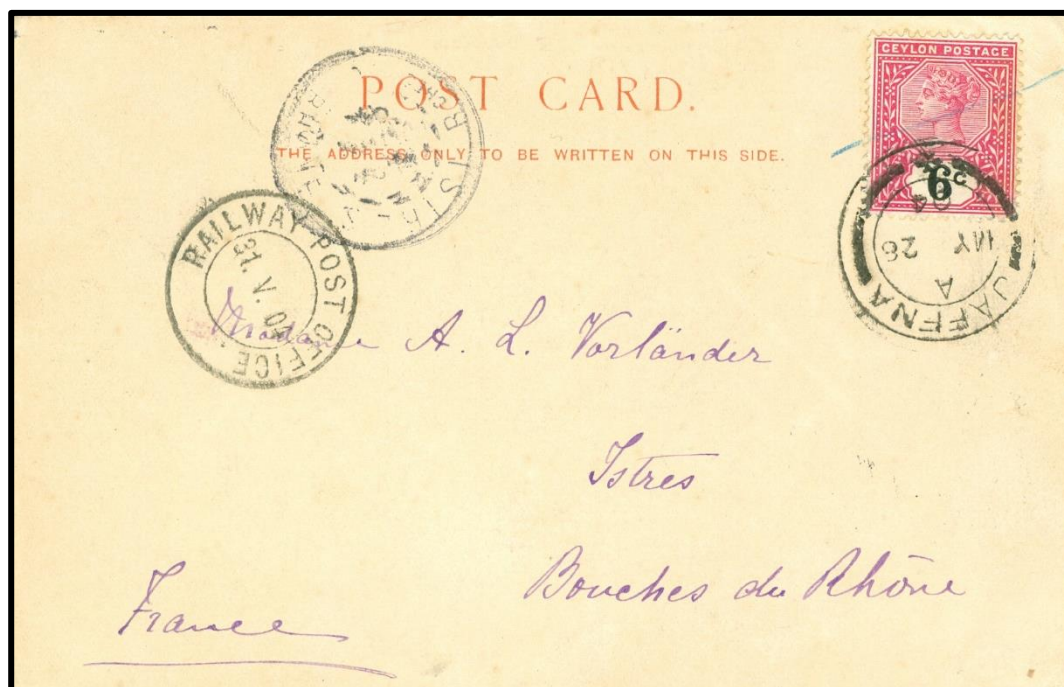 POST CARD.
THE ADDRESS ONLY TO BE WRITTEN ON THIS SIDE.
CEYLON POSTAGE
6c
JAFFNA
A
MY 28
04
RAILWAY POST OFFICE
31. V. 04
Madame A. L. Vorländer
Istres
Bouches du Rhône
France